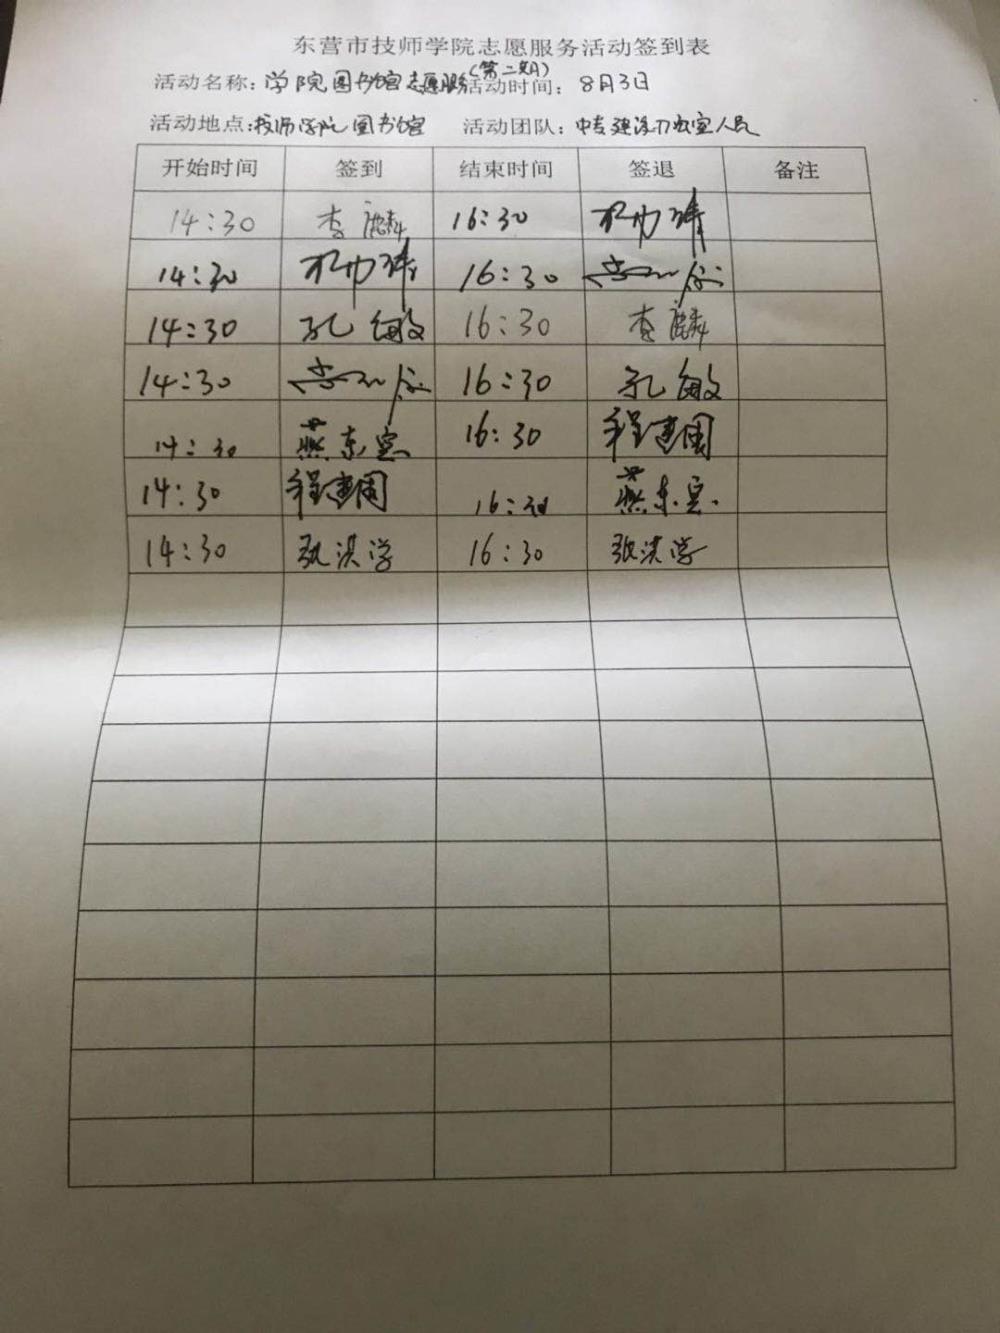 东营市技师学院志愿服务活动签到表
(第二期)
活动名称：学院图书馆志愿服务 活动时间：8月3日
活动地点：技师学院图书馆 活动团队：中专建设办公室人员
开始时间 签到 结束时间 签退 备注
14:30 李麟 16:30
14:30 16:30
14:30 孔敏 16:30 李麟
14:30 16:30 孔敏
14:30 燕东宝 16:30 程建国
14:30 程建国 16:30 燕东宝
14:30 张洪学 16:30 张洪学